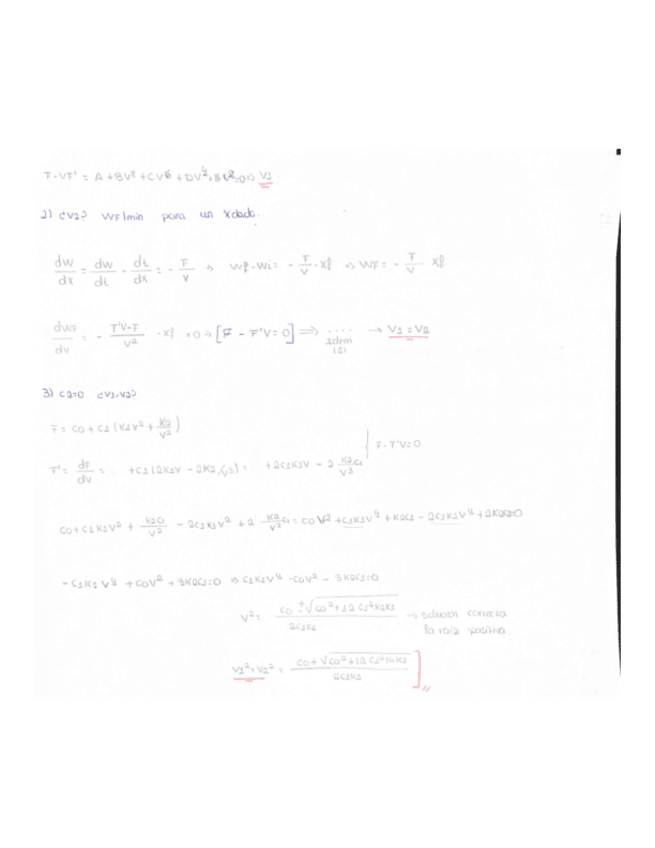 F-VF' = A + BV² + CV⁶ + DV⁴ + = 0 => V1
2) ¿V2? WF|min para un xdado.
dw/dx = dw/dt · dt/dx = - F/V → Wf-Wi = - F/V · Xf → WF = - F/V Xf
dWF/dV = - F'V-F/V² · Xf = 0 → [F - F'V = 0] => .... → V1 = V2
idem
(1)
3) C2=0 ¿V1,V2?
F = C0 + C1 (K1V² + K2/V²)
F-F'V=0
F' = dF/dV = +C1 (2K1V - 2K2/V³) = +2C1K1V - 2 K2C1/V³
C0 + C1K1V² + K2C1/V² - 2C1K1V² + 2 K2/V² C1 = C0V² + C1K1V⁴ + K2C1 - 2C1K1V⁴ + 2K2C1=0
-C1K1V⁴ + C0V² + 3K2C1=0 => C1K1V⁴ - C0V² - 3K2C1=0
V² = C0 ± √C0² + 12 C1²K2K1 / 2C1K1 → solución correcta
la raíz positiva.
V1² = V2² = C0 + √C0² + 12 C1²K1K2 / 2C1K1